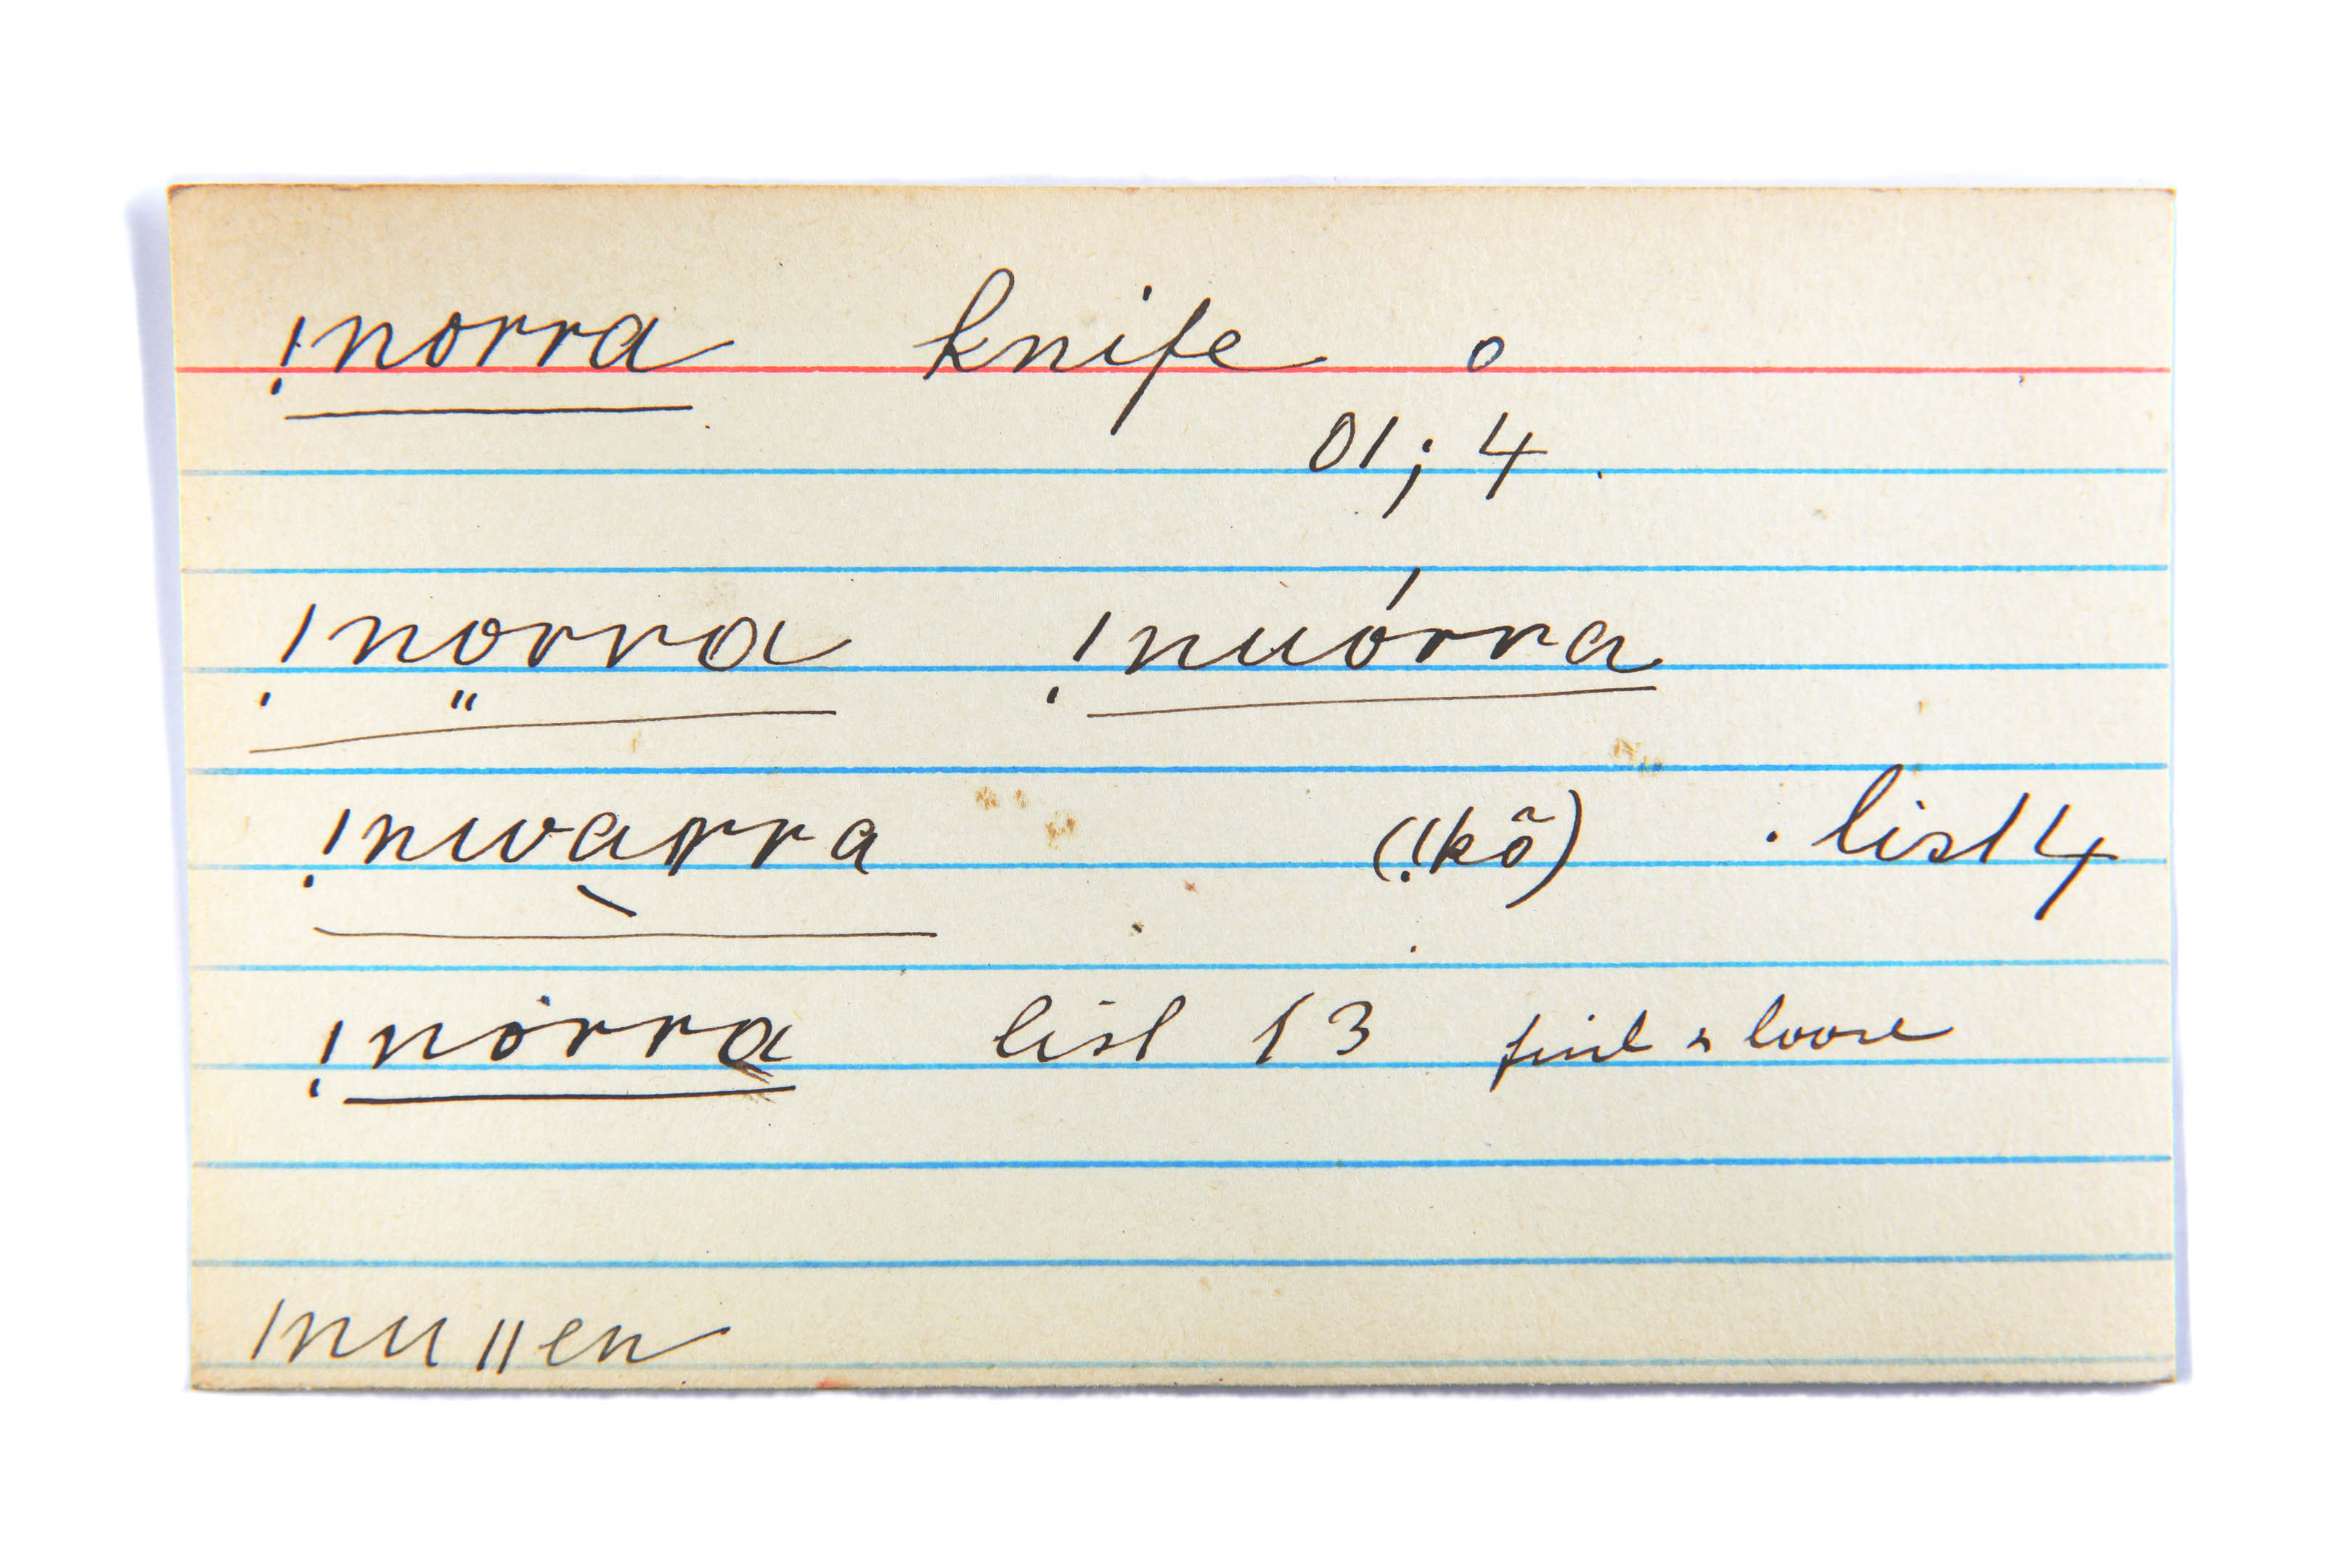 !norra knife o
01; 4.
!no̤rra !nuórra
!nwa̖rra (‼kõ) . list 4
!nȯrra list 13 find & loose
/nu//en